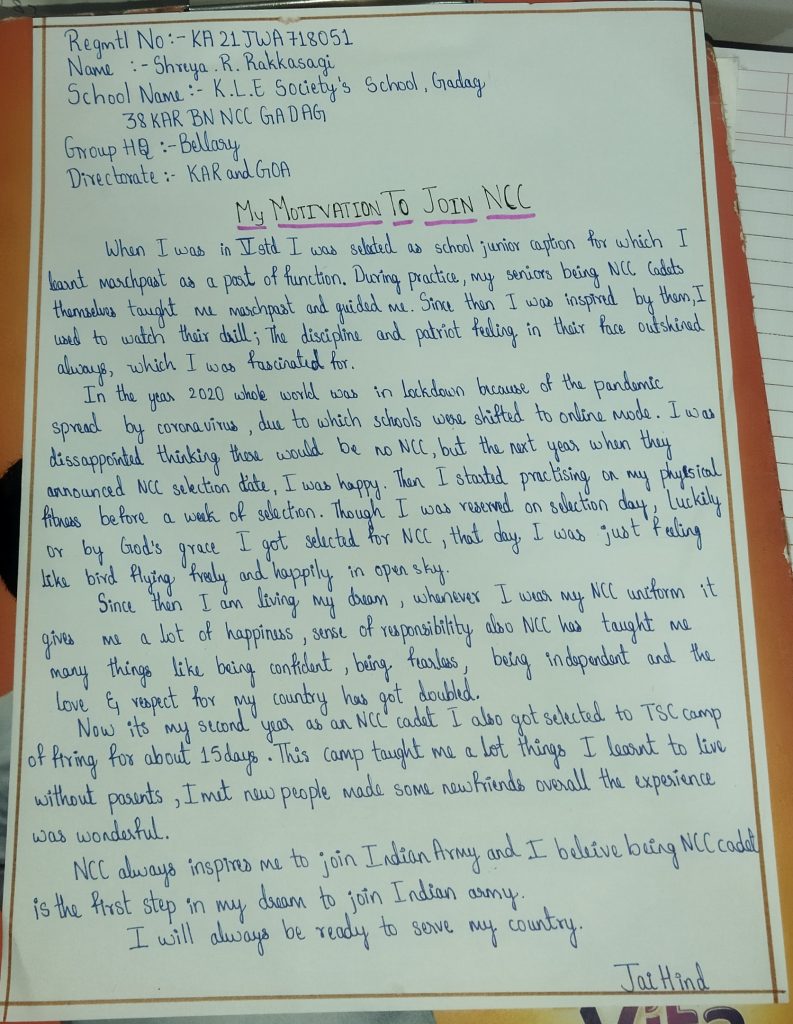 Regmtl No:- KA21JWA718051
Name :- Shreya.R.Rakkasagi
School Name:- K.L.E Society's School, Gadag
38 KAR BN NCC GADAG
Group HQ :- Bellary
Directorate :- KAR and GOA
My MOTIVATION To JOIN NCC
When I was in V std I was selected as school junior caption for which I
learnt marchpast as a part of function. During practice, my seniors being NCC Cadets
themselves taught me marchpast and guided me. Since then I was inspired by them, I
used to watch their drill; The discipline and patriot feeling in their face outshined
always, which I was fascinated for.
In the year 2020 whole world was in lockdown because of the pandemic
spread by coronavirus, due to which schools were shifted to online mode. I was
dissappointed thinking there would be no NCC, but the next year when they
announced NCC selection date, I was happy. Then I started practising on my physical
fitness before a week of selection. Though I was reserved on selection day, Luckily
or by God's grace I got selected for NCC, that day I was just feeling
like bird flying freely and happily in open sky.
Since then I am living my dream, whenever I wear my NCC uniform it
gives me a lot of happiness, sense of responsibility also NCC has taught me
many things like being confident, being fearless, being independent and the
love & respect for my country has got doubled.
Now its my second year as an NCC cadet I also got selected to TSC camp
of firing for about 15 days. This camp taught me a lot things I learnt to live
without parents, I met new people made some new friends overall the experience
was wonderful.
NCC always inspires me to join Indian Army and I beleive being NCC cadet
is the first step in my dream to join Indian army.
I will always be ready to serve my country.
Jai Hind
Vita